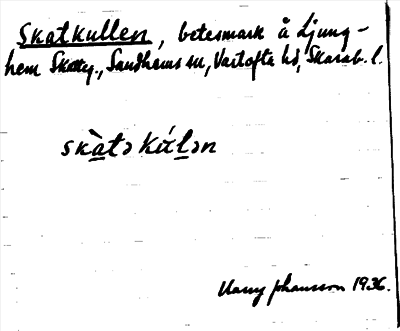 Skatkullen, betesmark å Ljung-
hem Skattg., Sandhems sn, Vartofta hd, Skarab. l.
skàtə kúlən
Harry Johansson 1936.